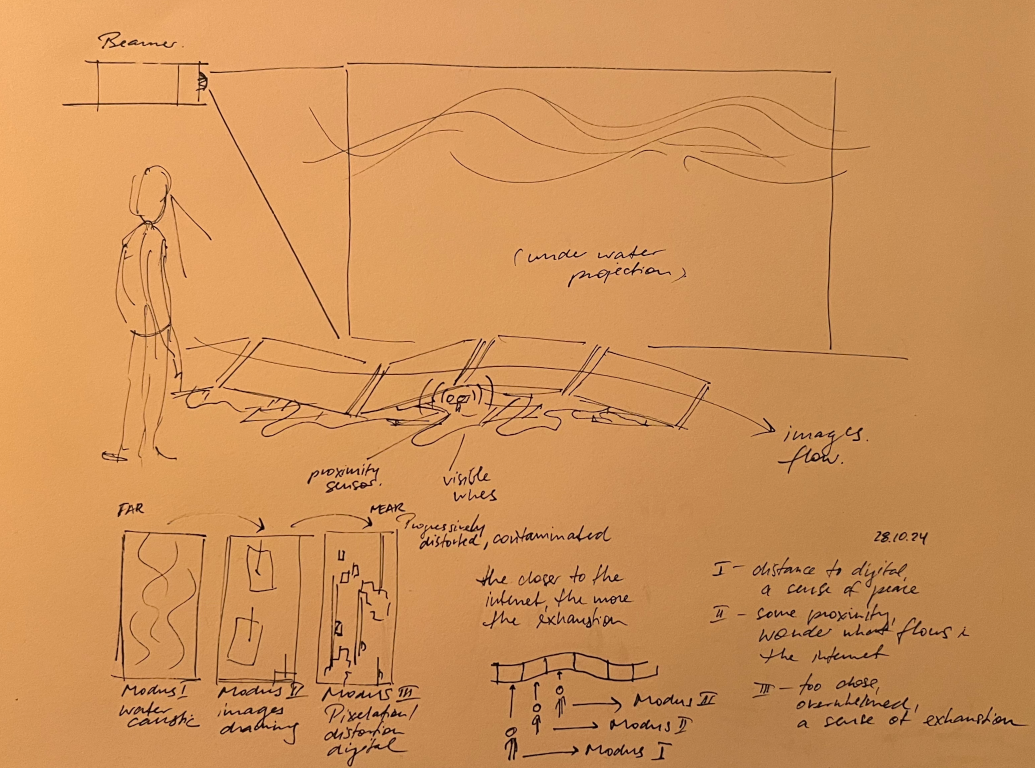 Beamer.
(under water
projection)
images.
flow.
proximity
sensor.
visible
wires
FAR
NEAR
Progressively
distorted, contaminated
the closer to the
internet, the more
the exhaustion
28.10.24
I – distance to digital,
a sense of peace
II – some proximity,
wonder what flows in
the internet
III – too close,
overwhelmed,
a sense of exhaustion
Modus I
water
caustic
Modus II
images
drawning
Modus III
Pixelation/
distortion
digital
Modus III
Modus II
Modus I